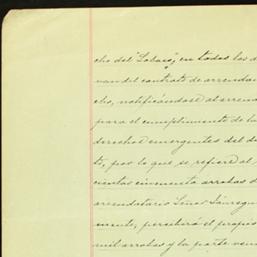 cho del "Lobaio", en todos los d
van del contrato de arrendam
cho, notificándose al arrenda
para el cumplimiento de la
derechos emergentes del d
to, por lo que se refiere al
cientas cincuenta arrobas d
arrendatario Señor Sáinzegu
mente, percibirá el propie
mil arrobas y la parte ven